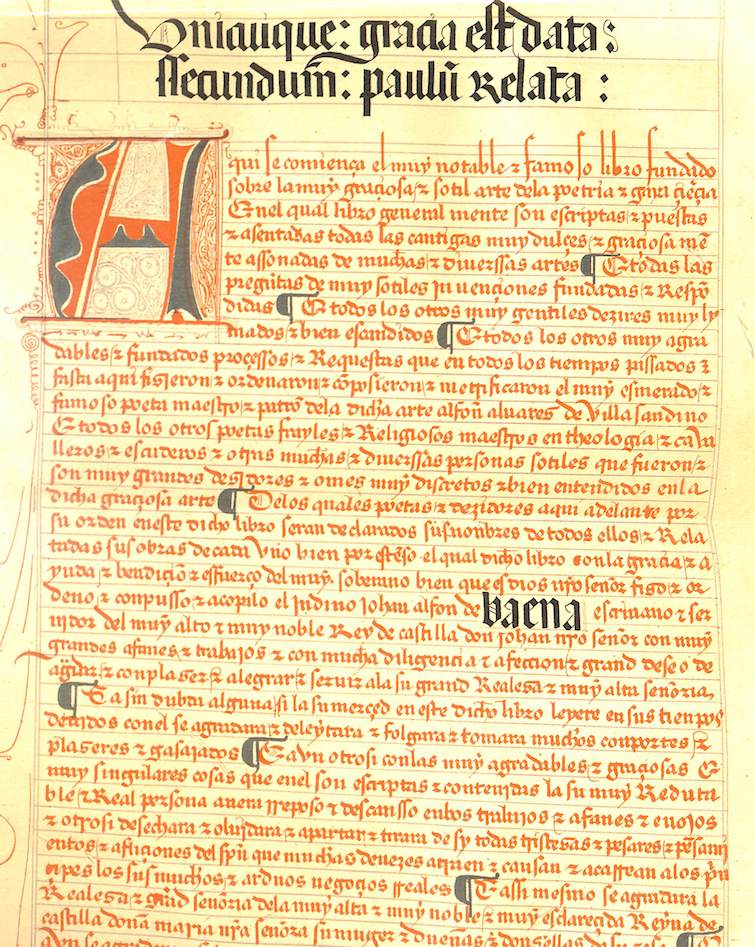 Vnicuique: gracia est data:
ssecundum̄: paulū Relata:
Aqui se comiença el muy notable ⁊ famoso libro fundado
sobre la muy graçiosa ⁊ sotil arte dela poetria ⁊ gaya çiēçia
En el qual libro general mente son escriptas ⁊ puestas
⁊ asentadas todas las cantigas muy dulçes ⁊ graçiosa mē
te assonadas de muchas ⁊ diuerssas artes ¶ E todas las
pregūtas de muy sotiles inuençiones fundadas ⁊ Respō
didas ¶ E todos los otros muy gentiles dezires muy ly
mados ⁊ bien escandidos ¶ E todos los otros muy agra
dables ⁊ fundados proçessos ⁊ Requestas que en todos los tiempos passados ⁊
fasta aqui fisyeron ⁊ ordenaron ⁊ cōposieron ⁊ metrificaron el muy esmerado ⁊
famoso poeta maestro ⁊ patrō dela dicha arte alfon aluares de Villa sandino
E todos los otros poetas frayles ⁊ Religiosos maestros en theologia ⁊ caua
lleros ⁊ escuderos ⁊ otras muchas ⁊ diuerssas personas sotiles que fueron ⁊
son muy grandes desidores ⁊ omes muy discretos ⁊ bien entendidos en la
dicha graçiosa arte ¶ Delos quales poetas ⁊ dezidores aqui adelante por
su orden en este dicho libro seran declarados sus nonbres de todos ellos ⁊ Rela
tadas sus obras de cada Vno bien por estēso el qual dicho libro con la graçia ⁊ a
yuda ⁊ bendiçiō ⁊ esfuerço del muy soberano bien que es dios nr̄o señor fiso ⁊ or
deno ⁊ conpusso ⁊ acopilo el judino johan alfon de baena escriuano ⁊ ser
uidor del muy alto ⁊ muy noble Rey de castilla don johan nr̄o señor con muy
grandes afanes ⁊ trabajos ⁊ con mucha diligençia ⁊ afecçion ⁊ grand deseo de
agradar ⁊ conplaser ⁊ alegrar ⁊ seruir ala su grand Realesa ⁊ muy alta señoria
¶ Ca sin dubda alguna si la su merçed en este dicho libro leyere en sus tienpos
deuidos con el se agradara ⁊ deleytara ⁊ folgara ⁊ tomara muchos conportes ⁊
plaseres ⁊ gasajados ¶ E avn otrosi con las muy agradables ⁊ graçiosas E
muy singulares cosas que en el son escriptas ⁊ contenidas la su muy Reduta
ble ⁊ Real persona auera rreposo ⁊ descansso en los trabajos ⁊ afanes ⁊ enojos
⁊ otrosi desechara ⁊ oluidara ⁊ apartara ⁊ tirara de sy todas tristesas ⁊ pesares ⁊ pēsami
entos ⁊ afliçiones del spū que muchas de vezes atraen ⁊ causan ⁊ acarrean a los prī
çipes los sus muchos ⁊ arduos negoçios rreales ¶ E assi mesmo se agradara la
Realesa ⁊ grād señoria dela muy alta ⁊ muy noble ⁊ muy esclareçida Reyna de
castilla doña maria nr̄a señora su muger ⁊ dueñas ⁊ donsellas